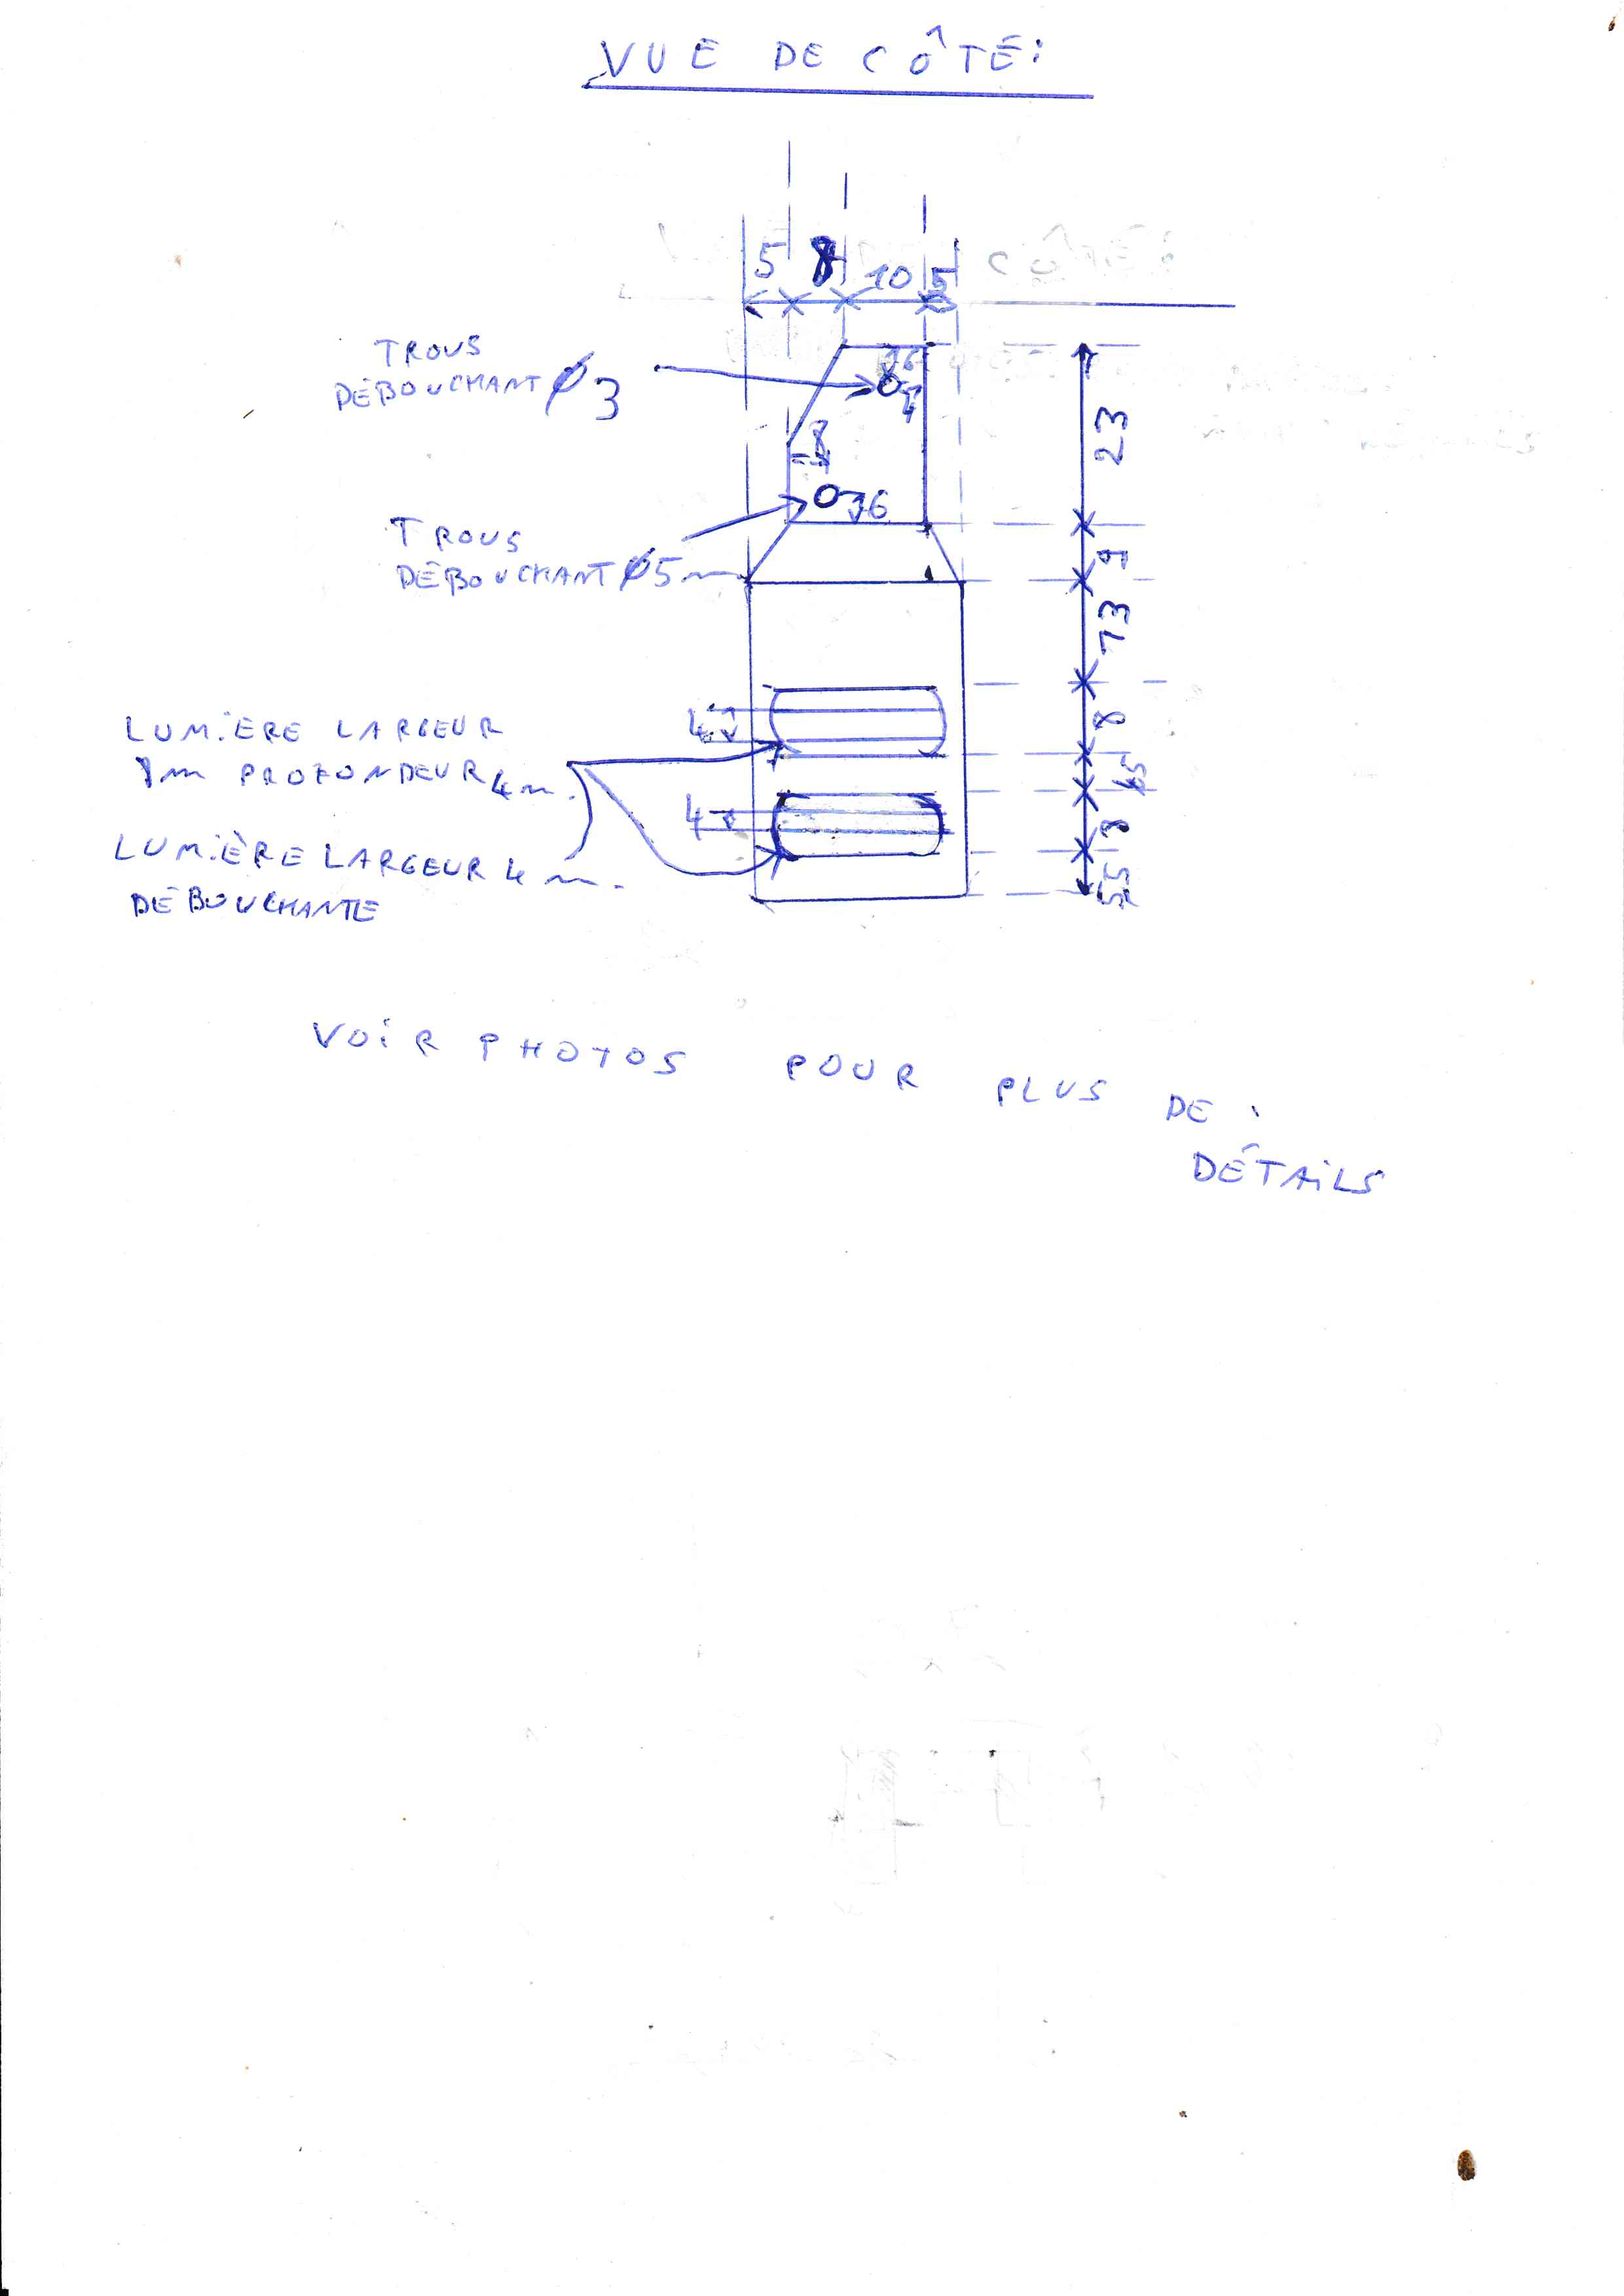 VUE DE CÔTÉ:
5 8 10 5
TROUS
DÉBOUCHANT Ø3
6
23
8
6
TROUS
DÉBOUCHANT Ø5m
9
13
LUMIÈRE LARGEUR
8m PROFONDEUR 4m.
4
8
4
8
LUMIÈRE LARGEUR 4m.
DÉBOUCHANTE
5,5
VOIR PHOTOS POUR PLUS DE
DÉTAILS